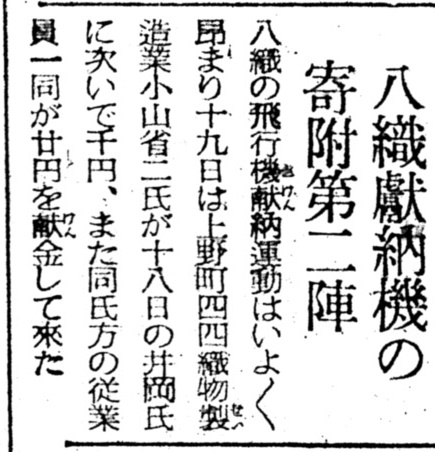 八織献納機の
寄附第二陣
八織の飛行機献納運動はいよ〱
昂まり十九日は上野町四四織物製
造業小山省二氏が十八日の井岡氏
に次いで千円、また同氏方の従業
員一同が廿円を献金して來た